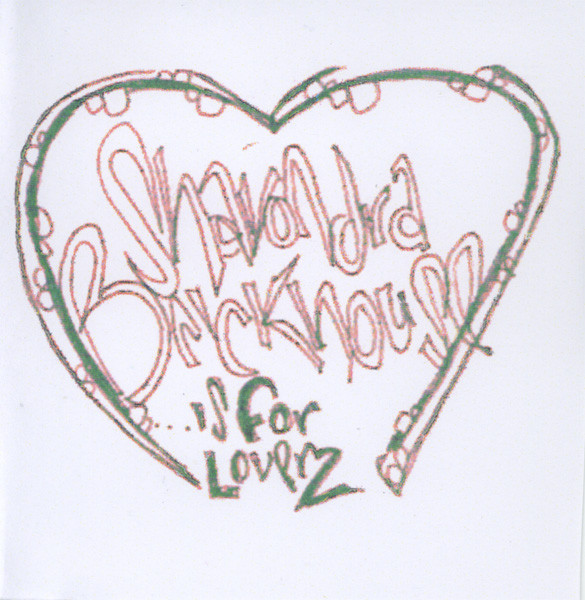 Shavondra
Brickhouse
...is for
LoverZ